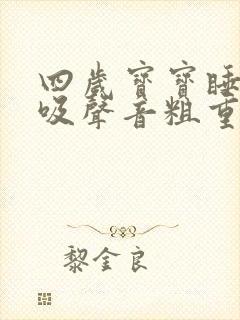 四歲寶寶睡
吸聲音粗重
黎金良